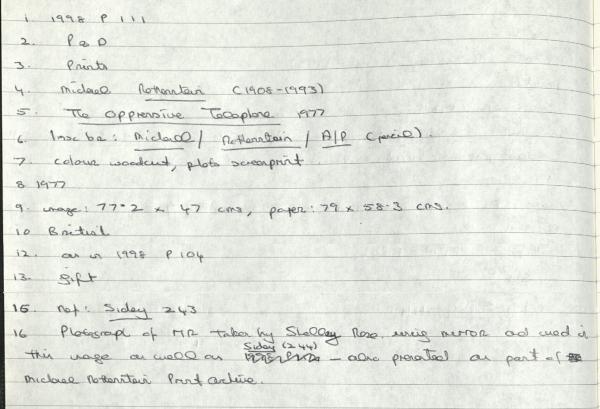 1. 1998 P 111
2. P & D
3. Prints
4. Michael Rothenstein (1908-1993)
5. The Oppressive Telephone 1977
6. Insc be: Michael / Rothenstein / A/P (pencil).
7. colour woodcut, photo screenprint
8 1977
9. image: 77.2 x 47 cms, paper: 79 x 58.3 cms.
10 British
12. as in 1998 P 104
13. gift
15. ref: Sidey 243
16 Photograph of MR taken by Shelley Rose using mirror and used in
this image as well as Sidey (244) - also presented as part of
Michael Rothenstein Print archive.